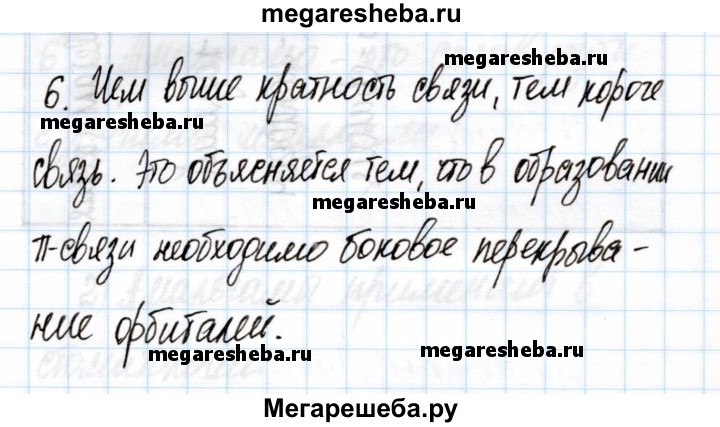 megaresheba.ru
megaresheba.ru
6. Чем выше кратность связи, тем короче
megaresheba.ru
связь. Это объясняется тем, что в образовании
megaresheba.ru
π-связи необходимо боковое перекрыва-
ние орбиталей.
megaresheba.ru
megaresheba.ru
Мегарешеба.ру